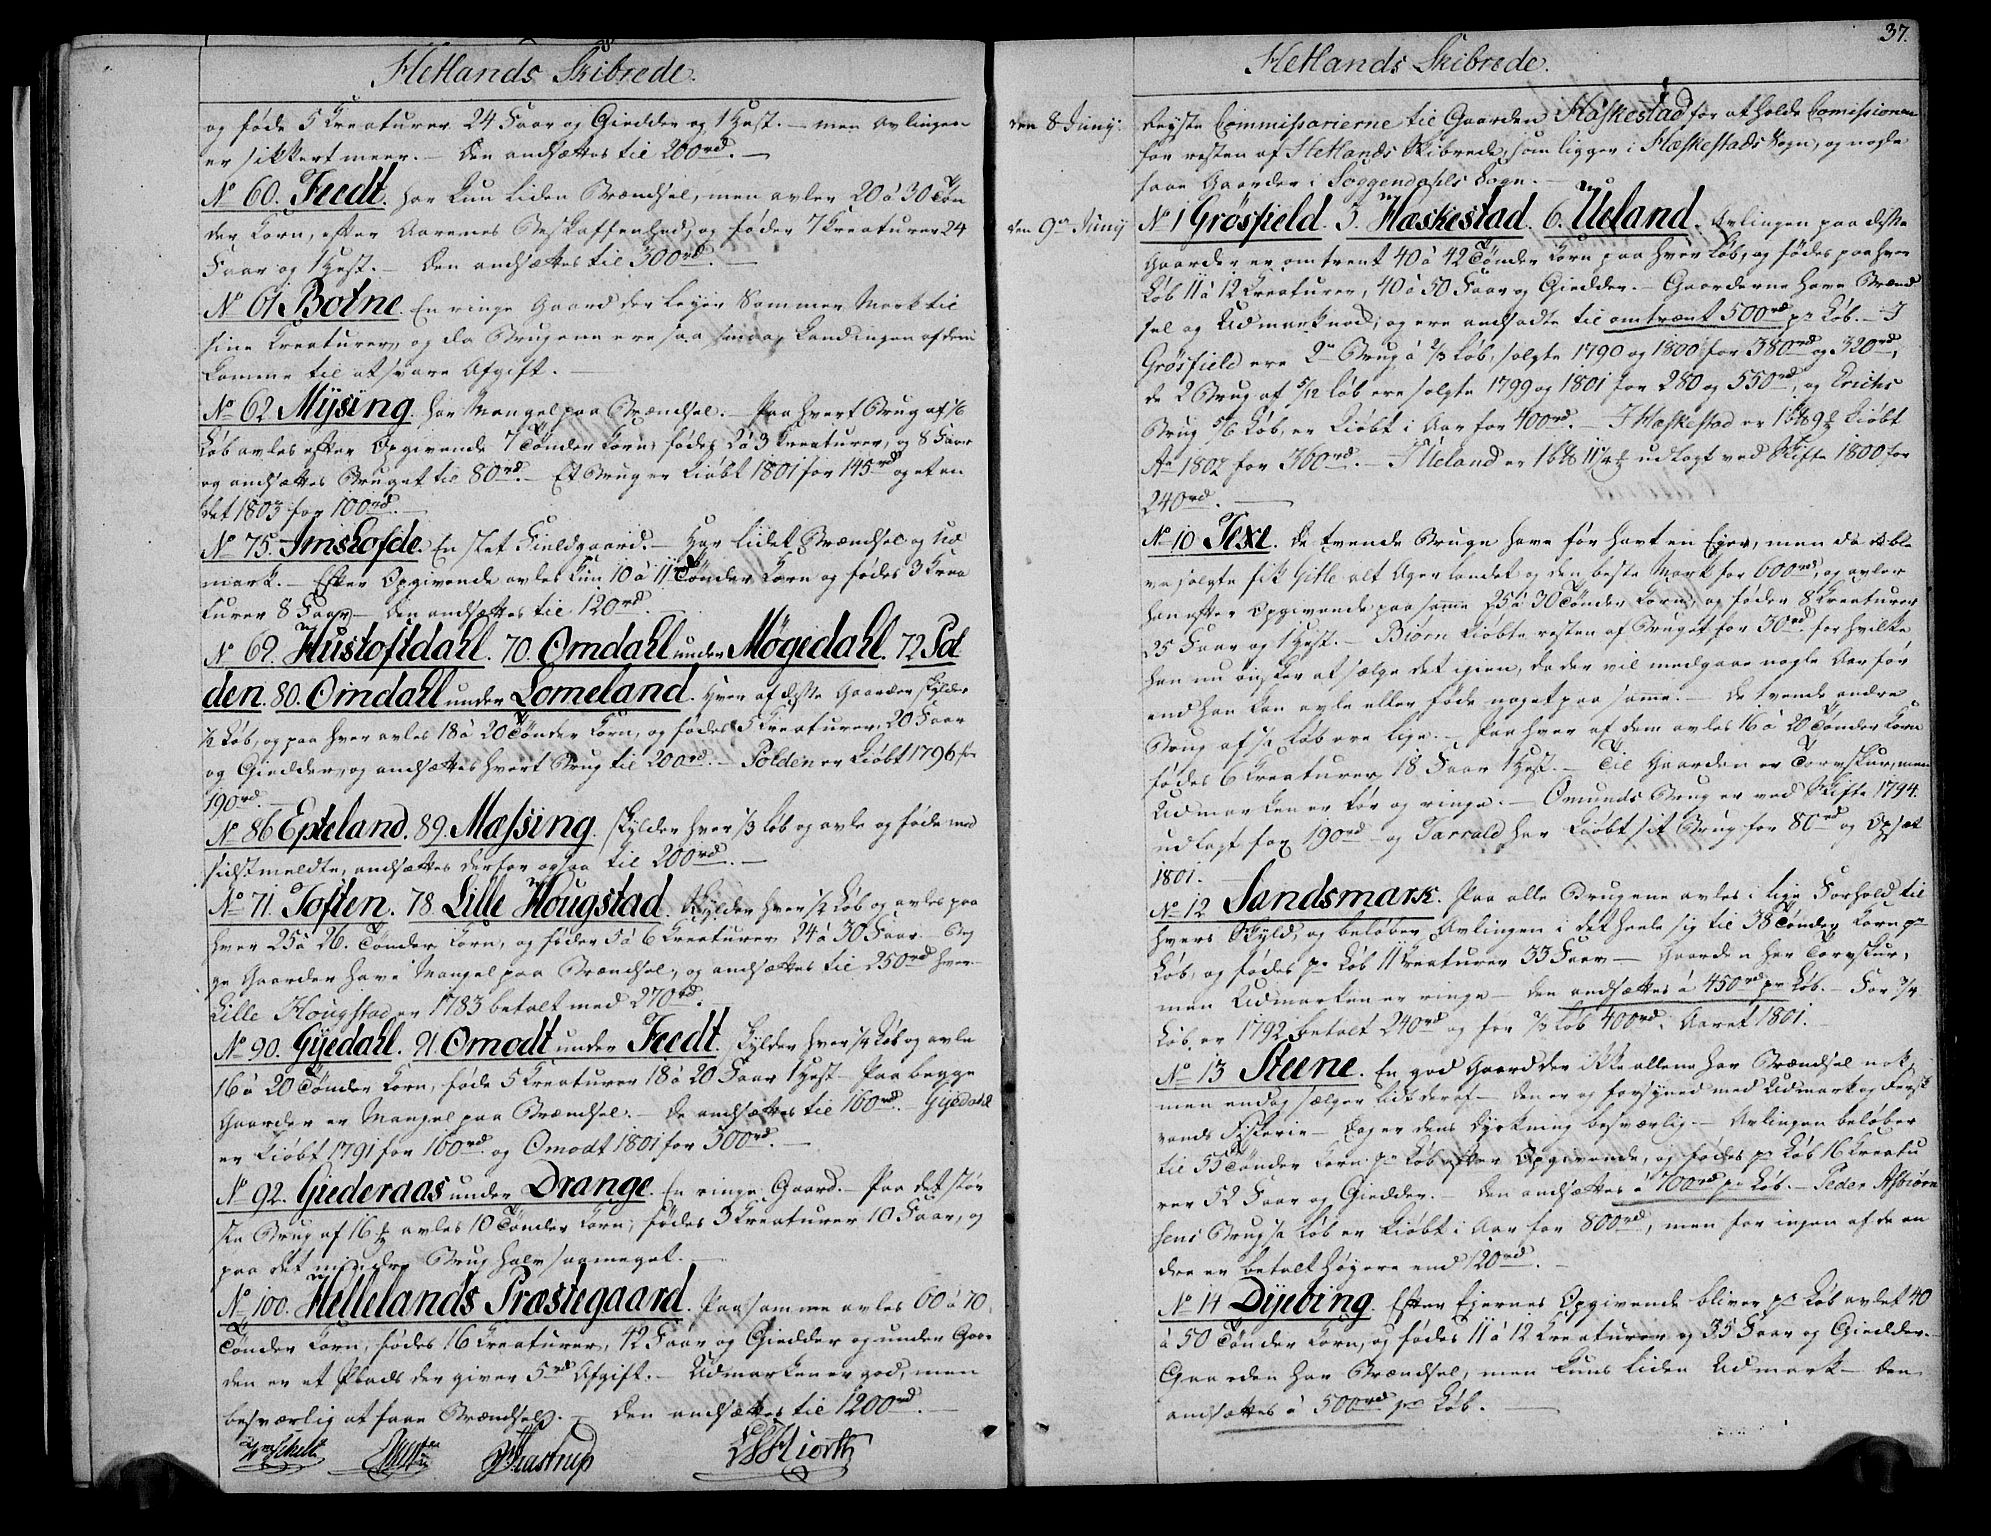 Hetlands Skibrede.
og føde 5 Kreaturer 24 Faar og Giedder og 1 Hest. – men Avlingen
er sikkert meer. – Den andsættes til 200rd. –
No 60. Feedt. har kun liden Brændsel, men avler 20 à 30 Tøn
der Korn, efter Aarenes Beskaffenhed, og føder 7 Kreaturer 24
Faar og 1 Hest. – Den andsættes til 300rd. –
No 61 Botne. En ringe Gaard der leyer Sommer Mark til
sine Kreaturer, og da Brugene ere saa smaa, kand ingen af dem
komme til at svare Afgift. –
No 62 Mysing. har Mangel paa Brændsel. – Paa hvert Brug af 1/6
Løb avles efter Opgivende 7 Tønder Korn, fødes 2 à 3 Kreaturer, og 8 Faar
og andsættes Bruget til 80rd. – Et Brug er kiøbt 1801 for 145rd og et an
det 1803 for 100rd. –
No 75. Imsrofde. En slet Fieldgaard. – Har lidet Brændsel og Ud
mark. – Efter Opgivende avles kun 10 à 11 Tønder Korn og fødes 3 Krea
turer 8 Faar – Den andsættes til 120rd. –
No 69. Hustoftdahl. 70. Omdahl under Møgedahl. 72 Sol
den. 80. Omdahl under Lomeland. Hver af disse Gaarder skylder
1/2 Løb, og paa hver avles 18 à 20 Tønder Korn, og fødes 5 Kreaturer, 20 Faar
og Giedder, og andsættes hvert Brug til 200rd. – Solden er kiøbt 1796 for
190rd. –
No 86 Epteland. 89. Massing. skylder hver 1/3 Løb og avle og føde med
sidstmeldte, andsættes derfor ogsaa til 200rd. –
No 71. Toften. 78. Lille Hougstad. skylder hver 1/2 Løb og avles paa
hver 25 à 26. Tønder Korn, og føder 5 à 6 Kreaturer 24 à 30 Faar – Beg
ge Gaarder have Mangel paa Brændsel, og andsættes til 250rd hver
Lille Hougstad er 1783 betalt med 270rd. –
No 90. Gyedahl. 91. Omodt under Feedt. skylder hver 1/4 Løb og avle
16 à 20 Tønder Korn, føde 5 Kreaturer 18 à 20 Faar 1 Hest – Paa begge
Gaarder er Mangel paa Brændsel. – De andsættes til 160rd. Gyedahl
er kiøbt 1791 for 160rd. og Omodt 1801 for 300rd. –
No 92. Giederaas under Drange. En ringe Gaard. – Paa det stør
ste Brug af 16 avles 10 Tønder Korn, fødes 3 Kreaturer 10 Faar, og
paa det mindre Brug halv saameget. –
No 100. Hellelands Præstegaard. Paa samme avles 60 à 70
Tønder Korn, fødes 16 Kreaturer, 42 Faar og Giedder og under Gaar
den er et Plads der giver 5rd Afgift. – Udmarken er god, men
besværlig at faae Brændsel. – Den andsættes til 1200rd. –
Schelt
Hiorth
37.
Hetlands Skibrede.
den 8 Junij.
Reyste Commissarierne til Gaarden Hæskestad for at holde Comissionen
for resten af Hetlands Skibrede, som ligger i Hæskestads Sogn, og nogle
faae Gaarder i Soggendahls Sogn. –
den 9de Junij
No 1 Grøsfield. 5. Hæskestad. 6. Ueland. Avlingen paa disse
Gaarder er omtrent 40 à 42 Tønder Korn paa hver Løb, og fødes paa hver
Løb 11 à 12 Kreaturer, 40 à 50 Faar og Giedder. – Gaarderne have Brænd
sel og Udmark nod, og ere andsadte til omtrent 500rd pr Løb. – I
Grøsfield ere 2de Brug à 2/3 Løb, solgte 1790 og 1800 for 380rd og 320rd,
de 2 Brug af 5/12 Løb ere solgte 1799 og 1801 for 280 og 550rd, og Erichs
Brug 5/6 Løb, er kiøbt i Aar for 400rd. – I Hæskestad er 1 9 1/2 kiøbt
Ao 1802 for 360rd. – I Ueland er 1 11 1/4 udlagt ved Skifte 1800 for
240rd. –
No 10 Texe. De tvende Bruge have før havt en Eyer, men da de ble
ve solgte fik Gitle alt Ager landet og den beste Mark for 600rd, og avler
han efter Opgivende paa samme 25 à 30 Tønder Korn, og føder 8 Kreaturer
25 Faar og 1 Hest. – Biørn kiøbte resten af Bruget for 30rd. for hvilke
han nu ønsker at sælge det igien, da der vil medgaae nogle Aar før
end han kan avle eller føde noget paa samme. – De tvende andre
Brug af 1/2 Løb ere lige. – Paa hver af dem avles 16 à 20 Tønder Korn
fødes 6 Kreaturer, 18 Faar 1 Hest. – Til Gaarden er Torvskur, men
Udmarken er tør og ringe. – Omunds Brug er ved Skifte 1794.
udlagt for 190rd – og Tarrald har kiøbt sit Brug for 80rd og Opsæt
1801. –
No 12 Sandsmark. Paa alle Brugene avles i lige Forhold til
hvers Skyld, og beløber Avlingen i det heele sig til 38 Tønder Korn pr
Løb, og fødes pr Løb 11 Kreaturer 33 Faar – Gaarden har Torvskur,
men Udmarken er ringe – Den andsættes à 450rd pr Løb. – For 3/4
Løb er 1792 betalt 240rd og for 2/3 Løb 400rd. Aaret 1801. –
No 13 Steene. En god Gaard der ikke allene har Brændsel nok,
men endog sælger lidt deraf – Den er og forsyned med Udmark og fersk
vands Fiskerie – Dog er dens Dyrkning besværlig – Avlingen beløber
til 55 Tønder Korn pr Løb efter Opgivende, og fødes pr Løb 16 Kreatu
rer 52 Faar og Giedder. – Den andsættes à 700rd pr Løb. – Peder Asbiørn
sens Brug 1/2 Løb er kiøbt i Aar for 800rd, men for ingen af de an
dre er betalt høyere end 120rd. –
No 14 Dyebing. Efter Eyernes Opgivende bliver pr Løb avlet 40
à 50 Tønder Korn, og fødes 11 à 12 Kreaturer og 35 Faar og Giedder. –
Gaarden har Brændsel, men kuns liden Udmark – Den
andsættes à 500rd pr Løb. –